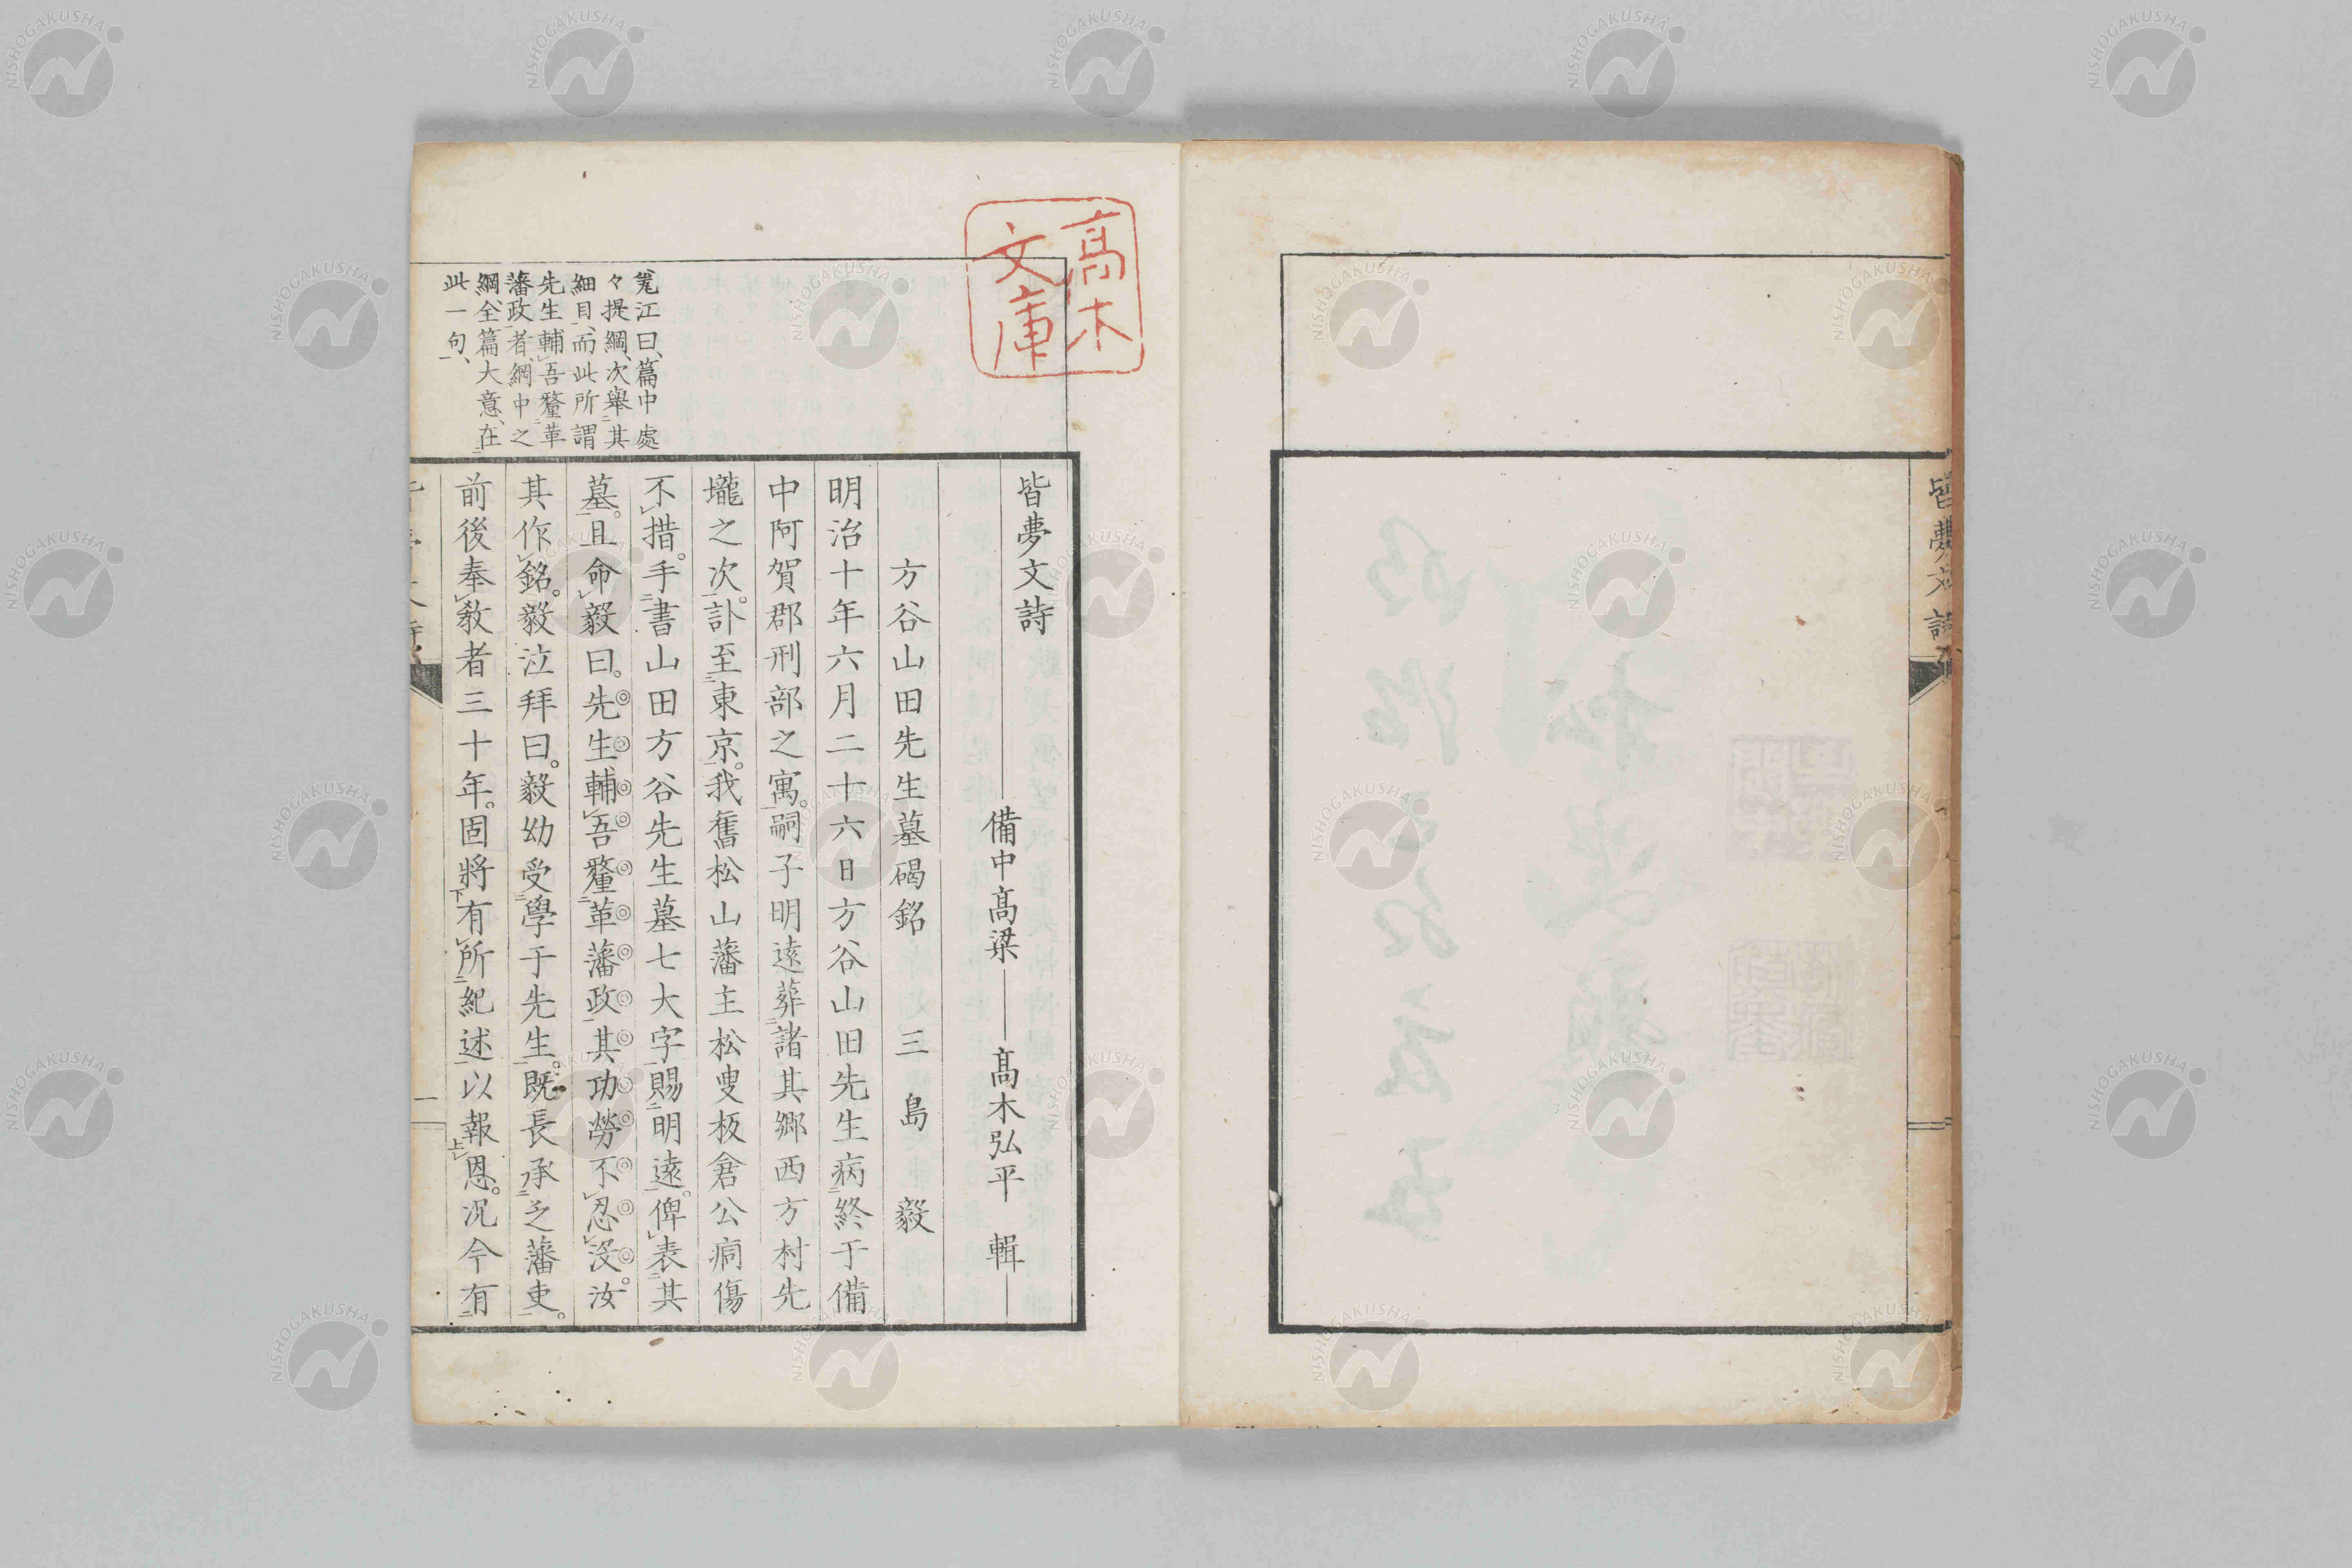 皆夢文詩
高木
文庫
皆夢文詩
備中高梁 高木弘平 輯
方谷山田先生墓碣銘 三島毅
明治十年六月二十六日方谷山田先生病終于備
中阿賀郡刑部之寓。嗣子明遠葬諸其鄉西方村先
壠之次。訃至東京。我舊松山藩主松叟板倉公痌傷
不措。手書山田方谷先生墓七大字賜明遠。俾表其
墓。且命毅曰。先生輔吾釐革藩政其功勞不忍沒。汝
其作銘。毅泣拜曰。毅幼受學于先生。既長承乏藩吏。
前後奉敎者三十年。固將有所紀述以報恩。況今有
江曰、篇中處
々提綱、次舉其
細目、而此所謂
先生輔吾釐革
藩政者、綱中之
綱、全篇大意、在
此一句、
一
NISHOGAKUSHA